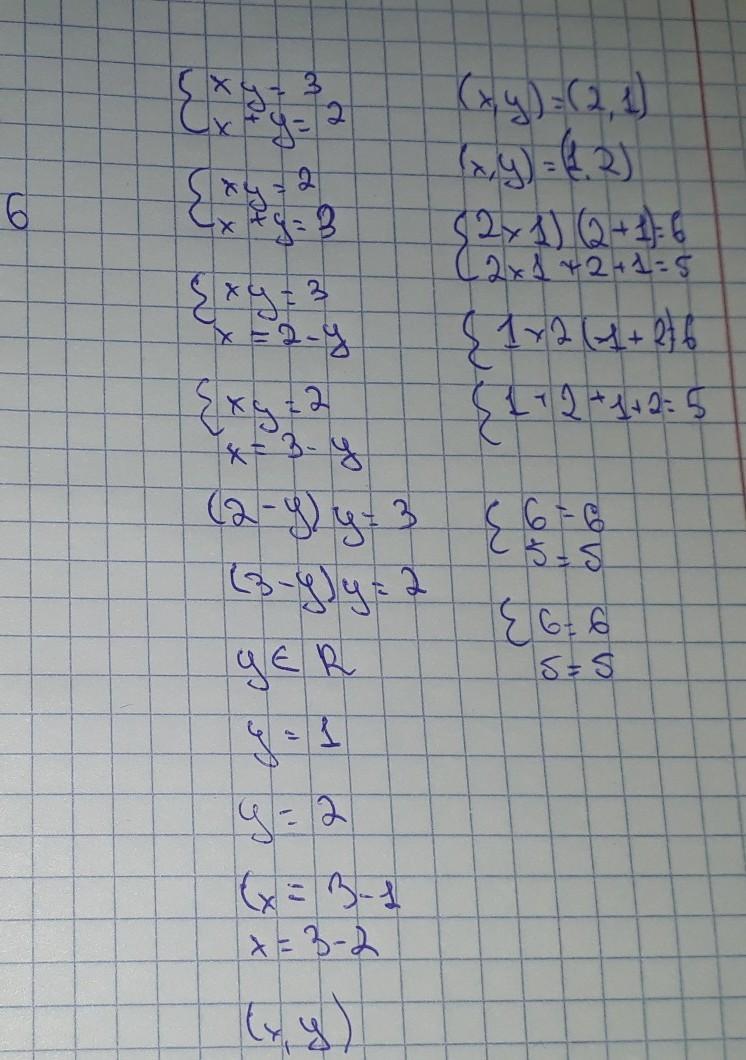 6
{ xy = 3
x + y = 2
{ xy = 2
x + y = 3
{ xy = 3
x = 2 - y
{ xy = 2
x = 3 - y
(2 - y) y = 3
(3 - y) y = 2
y ∈ R
y = 1
y = 2
(x = 3 - 1
x = 3 - 2
(x, y)
(x, y) = (2, 1)
(x, y) = (1, 2)
{ 2 × 1) (2 + 1) = 6
2 × 1 + 2 + 1 = 5
{ 1 × 2 (1 + 2) = 6
{ 1 + 2 + 1 + 2 = 5
{ 6 = 6
5 = 5
{ 6 = 6
5 = 5